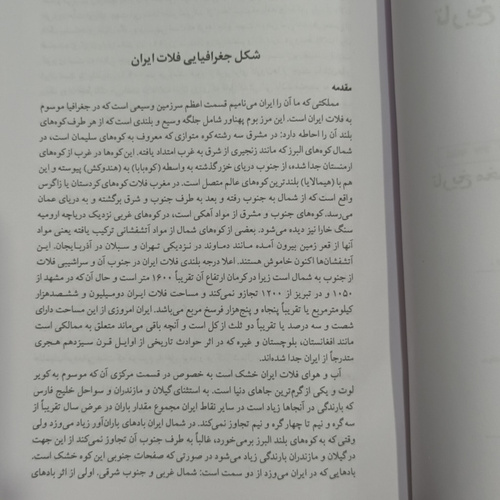 شکل جغرافیایی فلات ایران
مقدمه
مملکتی که ما آن را ایران می‌نامیم قسمت اعظم سرزمین وسیعی است که در جغرافیا موسوم
به فلات ایران است. این مرز بوم پهناور شامل جلگه وسیع و بلندی است که از هر طرف کوه‌های
بلند آن را احاطه دارد: در مشرق سه رشته کوه متوازی که معروف به کوه‌های سلیمان است، در
شمال کوه‌های البرز که مانند زنجیری از شرق به غرب امتداد یافته. این کوه‌ها در غرب از کوه‌های
ارمنستان جدا شده، از جنوب دریای خزر گذشته به واسطه (کوه‌بابا) به (هندوکش) پیوسته و این
هم با (هیمالایا) بلندترین کوه‌های عالم متصل است. در مغرب فلات کوه‌های کردستان یا زاگرس
واقع است که از شمال به جنوب رفته و بعد به طرف جنوب و شرق برگشته و به دریای عمان
می‌رسد. کوه‌های جنوب و مشرق از مواد آهکی است، در کوه‌های غربی نزدیک دریاچه ارومیه
سنگ خارا نیز دیده می‌شود. بعضی از کوه‌های شمال از مواد آتشفشانی ترکیب یافته یعنی مواد
آنها از قعر زمین بیرون آمده مانند دماوند در نزدیکی تهران و سبلان در آذربایجان. این
آتشفشان‌ها اکنون خاموش هستند. اعلا درجه بلندی فلات ایران در جنوب آن و سراشیبی فلات
از جنوب به شمال است زیرا در کرمان ارتفاع آن تقریباً ۱۶۰۰ متر است و حال آن که در مشهد از
۱۰۵۰ و در تبریز از ۱۲۰۰ تجاوز نمی‌کند و مساحت فلات ایران دومیلیون و ششصدهزار
کیلومترمربع یا تقریباً پنجاه و پنج‌هزار فرسخ مربع می‌باشد. ایران امروزی از این مساحت دارای
شصت و سه درصد یا تقریباً دو ثلث از کل است و آنچه باقی می‌ماند متعلق به ممالکی است
مانند افغانستان، بلوچستان و غیره که در اثر حوادث تاریخی از اوایل قرن سیزدهم هجری
متدرجاً از ایران جدا شده‌اند.
آب و هوای فلات ایران خشک است به خصوص در قسمت مرکزی آن که موسوم به کویر
لوت و یکی از گرم‌ترین جاهای دنیا است. به استثنای گیلان و مازندران و سواحل خلیج فارس
که بارندگی در آنجاها زیاد است در سایر نقاط ایران مجموع مقدار باران در عرض سال تقریباً از
سه گره و نیم تا چهار گره و نیم تجاوز نمی‌کند. در شمال ایران بادهای باران‌آور زیاد می‌وزد ولی
وقتی که به کوه‌های بلند البرز برمی‌خورد، غالباً به طرف جنوب آن تجاوز نمی‌کند از این جهت
در گیلان و مازندران بارندگی زیاد می‌شود در صورتی که صفحات جنوبی این کوه خشک است.
بادهایی که در ایران می‌وزد از دو سمت است: شمال غربی و جنوب شرقی. اولی از اثر بادهای